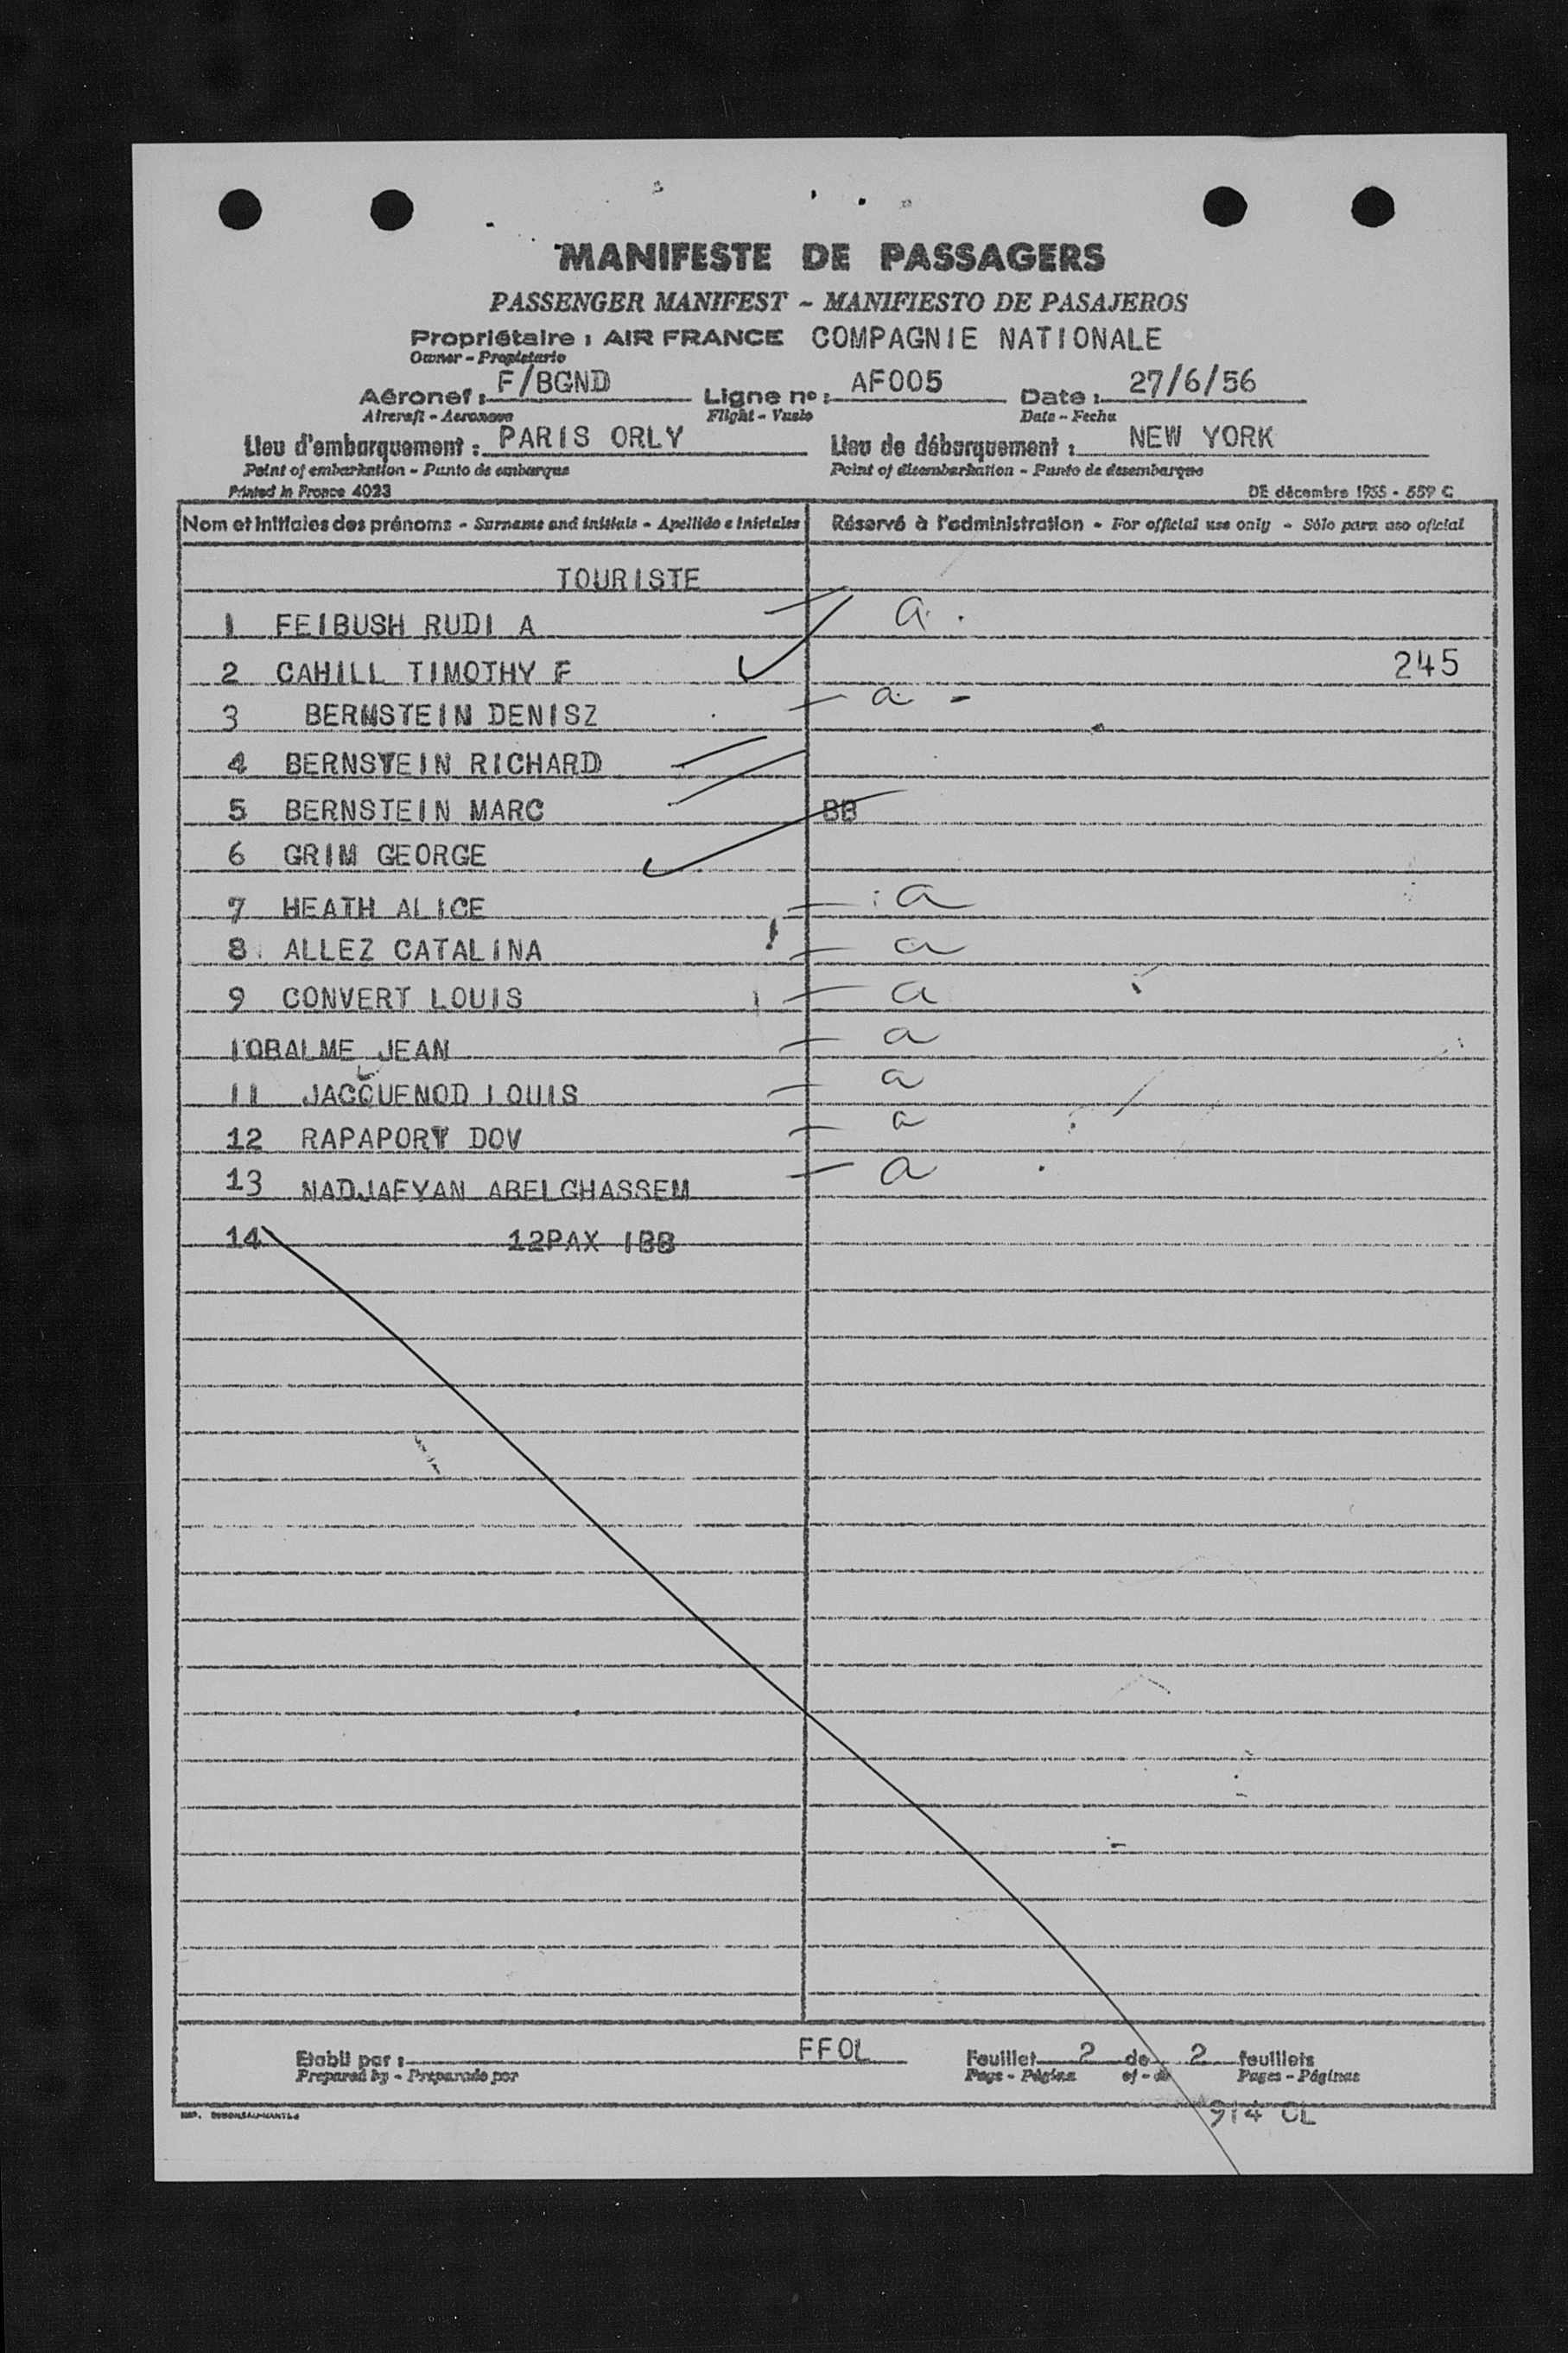 MANIFESTE DE PASSAGERS
PASSENGER MANIFEST - MANIFIESTO DE PASAJEROS
Propriétaire : AIR FRANCE COMPAGNIE NATIONALE
Owner - Propietario
Aéronef : F/BGND Ligne nº : AF005 Date : 27/6/56
Aircraft - Aeronave Flight - Vuelo Date - Fecha
Lieu d'embarquement : PARIS ORLY Lieu de débarquement : NEW YORK
Point of embarkation - Punto de embarque Point of disembarkation - Punto de desembarque
Printed in France 4023 DE décembre 1955 - 559 C
Nom et initiales des prénoms - Surname and initials - Apellido e iniciales Réservé à l'administration - For official use only - Sólo para uso oficial
TOURISTE
1 FEIBUSH RUDI A a
2 CAHILL TIMOTHY F 245
3 BERNSTEIN DENISZ a
4 BERNSTEIN RICHARD
5 BERNSTEIN MARC BB
6 GRIM GEORGE
7 HEATH ALICE a
8 ALLEZ CATALINA a
9 CONVERT LOUIS a
10BALME JEAN a
11 JACQUENOD LOUIS a
12 RAPAPORT DOV a
13 NADJAFYAN ABELGHASSEM a
14 12PAX 1BB
Etabli par : FFOL Feuillet 2 de 2 feuillets
Prepared by - Preparado por Page - Página of - de Pages - Páginas
914 CL